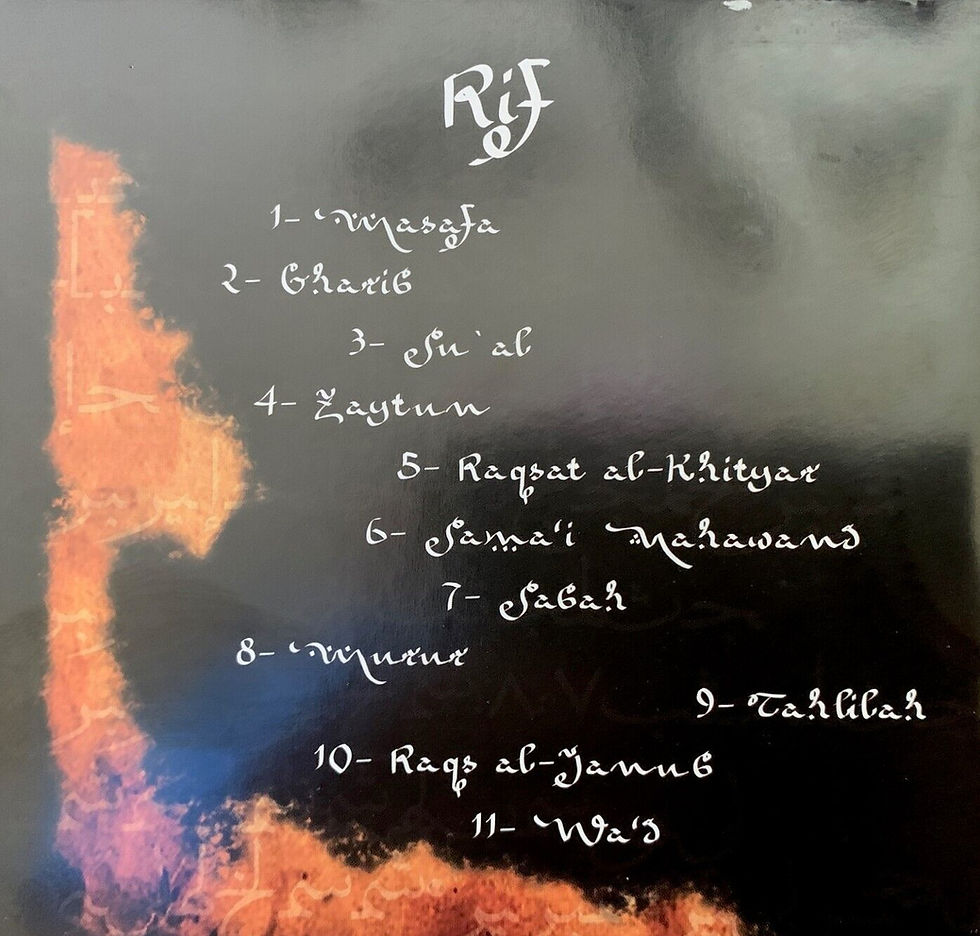 Rif
1- Masafa
2- Gharib
3- Su`al
4- Zaytun
5- Raqsat al-Khityar
6- Sama‘i Nahawand
7- Sabah
8- Murur
9- Tahlilah
10- Raqs al-Janub
11- Wa‘d